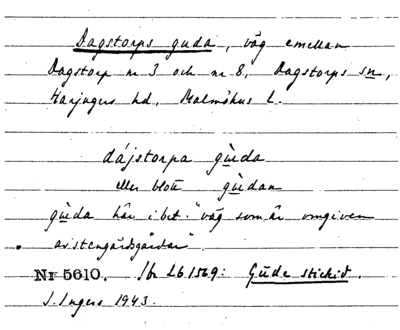 Dagstorps guda, väg emellan
Dagstorp nr 3 och nr 8, Dagstorps sn,
Harjagers hd, Malmöhus L.
dájstorpa gùida
eller blott gùidan
gùida här i bet. "väg som är omgiven
av stengärdsgårdar".
Nr 5610. Jbr LG 1569: Gude stickid.
I. Ingers 1943.